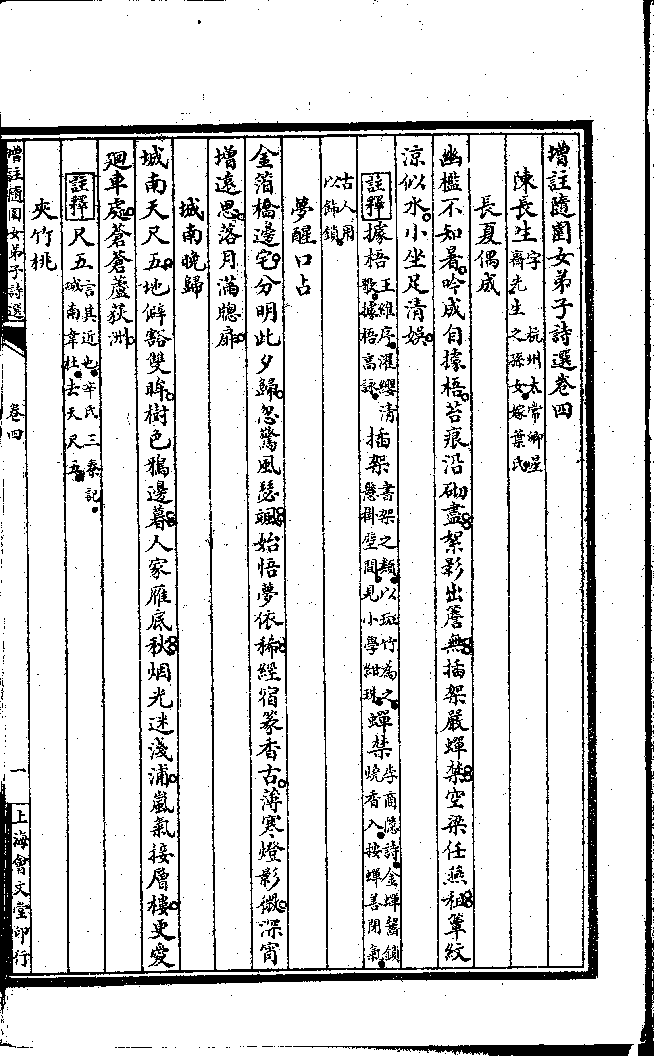 增註隨園女弟子詩選卷四
陳長生字　杭州太常卿星齋先生之孫女嫁葉氏
長夏偶成
幽檻不知暑吟成自據梧苔痕沿砌盡絮影出簷無插架嚴蟬禁空梁任燕租簟紋
涼似水小坐足清娛
註釋據梧王維序濯纓清歌據梧高詠插架書架之類以斑竹為之懸掛壁間見小學紺珠蟬禁李商隱詩金蟬齧鎖燒香入按蟬善閉氣
古人用以飾鎖
夢醒口占
金箔橋邊宅分明此夕歸忽驚風瑟颯始悟夢依稀經宿篆香古薄寒燈影微深宵
增遠思落月滿牕扉
城南晚歸
城南天尺五地僻豁雙眸樹色鴉邊暮人家雁底秋烟光迷淺浦嵐氣接層樓更愛
廻車處蒼蒼蘆荻洲
註釋尺五言其近也辛氏三秦記城南韋杜去天尺五
夾竹桃
增註隨園女弟子詩選　卷四　一　上海會文堂印行